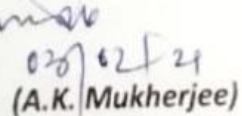 03/02/21
(A.K. Mukherjee)